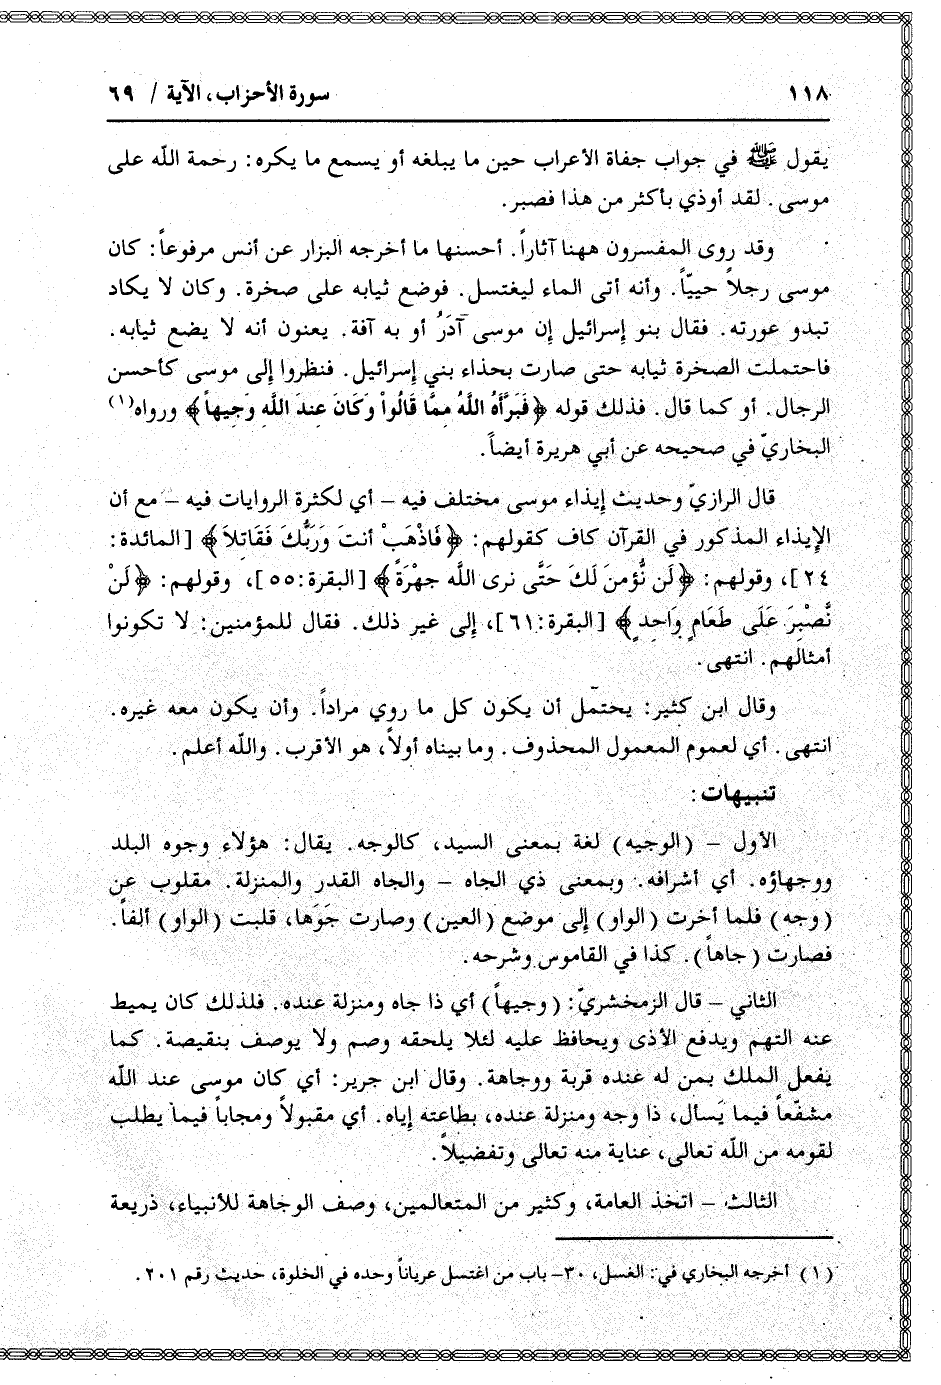 ١١٨
سورة الأحزاب، الآية / ٦٩
يقول ﷺ في جواب جفاة الأعراب حين ما يبلغه أو يسمع ما يكره: رحمة اللّه على
موسى. لقد أوذي بأكثر من هذا فصبر.
وقد روى المفسرون ههنا آثاراً. أحسنها ما أخرجه البزار عن أنس مرفوعاً: كان
موسى رجلاً حييّاً. وأنه أتى الماء ليغتسل. فوضع ثيابه على صخرة. وكان لا يكاد
تبدو عورته. فقال بنو إسرائيل إن موسى آدَرُ أو به آفة. يعنون أنه لا يضع ثيابه.
فاحتملت الصخرة ثيابه حتى صارت بحذاء بني إسرائيل. فنظروا إلى موسى كأحسن
الرجال. أو كما قال. فذلك قوله ﴿فَبَرَّأَهُ اللَّهُ مِمَّا قَالُواْ وَكَانَ عِندَ اللَّهِ وَجِيهاً﴾ ورواه(١)
البخاريّ في صحيحه عن أبي هريرة أيضاً.
قال الرازيّ وحديث إيذاء موسى مختلف فيه – أي لكثرة الروايات فيه – مع أن
الإيذاء المذكور في القرآن كاف كقولهم: ﴿فَاذْهَبْ أَنتَ وَرَبُّكَ فَقَاتِلاَ﴾ [المائدة:
٢٤]، وقولهم: ﴿لَن نُّؤْمِنَ لَكَ حَتَّى نَرَى اللَّه جَهْرَةً﴾ [البقرة:٥٥]، وقولهم: ﴿لَنْ
نَّصْبِرَ عَلَى طَعَامٍ وَاحِدٍ﴾ [البقرة:٦١]، إلى غير ذلك. فقال للمؤمنين: لا تكونوا
أمثالهم. انتهى.
وقال ابن كثير: يحتمل أن يكون كل ما روي مراداً. وأن يكون معه غيره.
انتهى. أي لعموم المعمول المحذوف. وما بيناه أولاً، هو الأقرب. واللّه أعلم.
تنبيهات:
الأول – (الوجيه) لغة بمعنى السيد، كالوجه. يقال: هؤلاء وجوه البلد
ووجهاؤه. أي أشرافه. وبمعنى ذي الجاه – والجاه القدر والمنزلة. مقلوب عن
(وجه) فلما أخرت (الواو) إلى موضع (العين) وصارت جَوَها، قلبت (الواو) ألفاً.
فصارت (جاهاً). كذا في القاموس وشرحه.
الثاني – قال الزمخشريّ: (وجيهاً) أي ذا جاه ومنزلة عنده. فلذلك كان يميط
عنه التهم ويدفع الأذى ويحافظ عليه لئلا يلحقه وصم ولا يوصف بنقيصة. كما
يفعل الملك بمن له عنده قربة ووجاهة. وقال ابن جرير: أي كان موسى عند اللّه
مشفّعاً فيما يَسأل، ذا وجه ومنزلة عنده، بطاعته إياه. أي مقبولاً ومجاباً فيما يطلب
لقومه من اللّه تعالى، عناية منه تعالى وتفضيلاً.
الثالث – اتخذ العامة، وكثير من المتعالمين، وصف الوجاهة للأنبياء، ذريعة
(١) أخرجه البخاري في: الغسل، ٣٠– باب من اغتسل عرياناً وحده في الخلوة، حديث رقم ٢٠١.